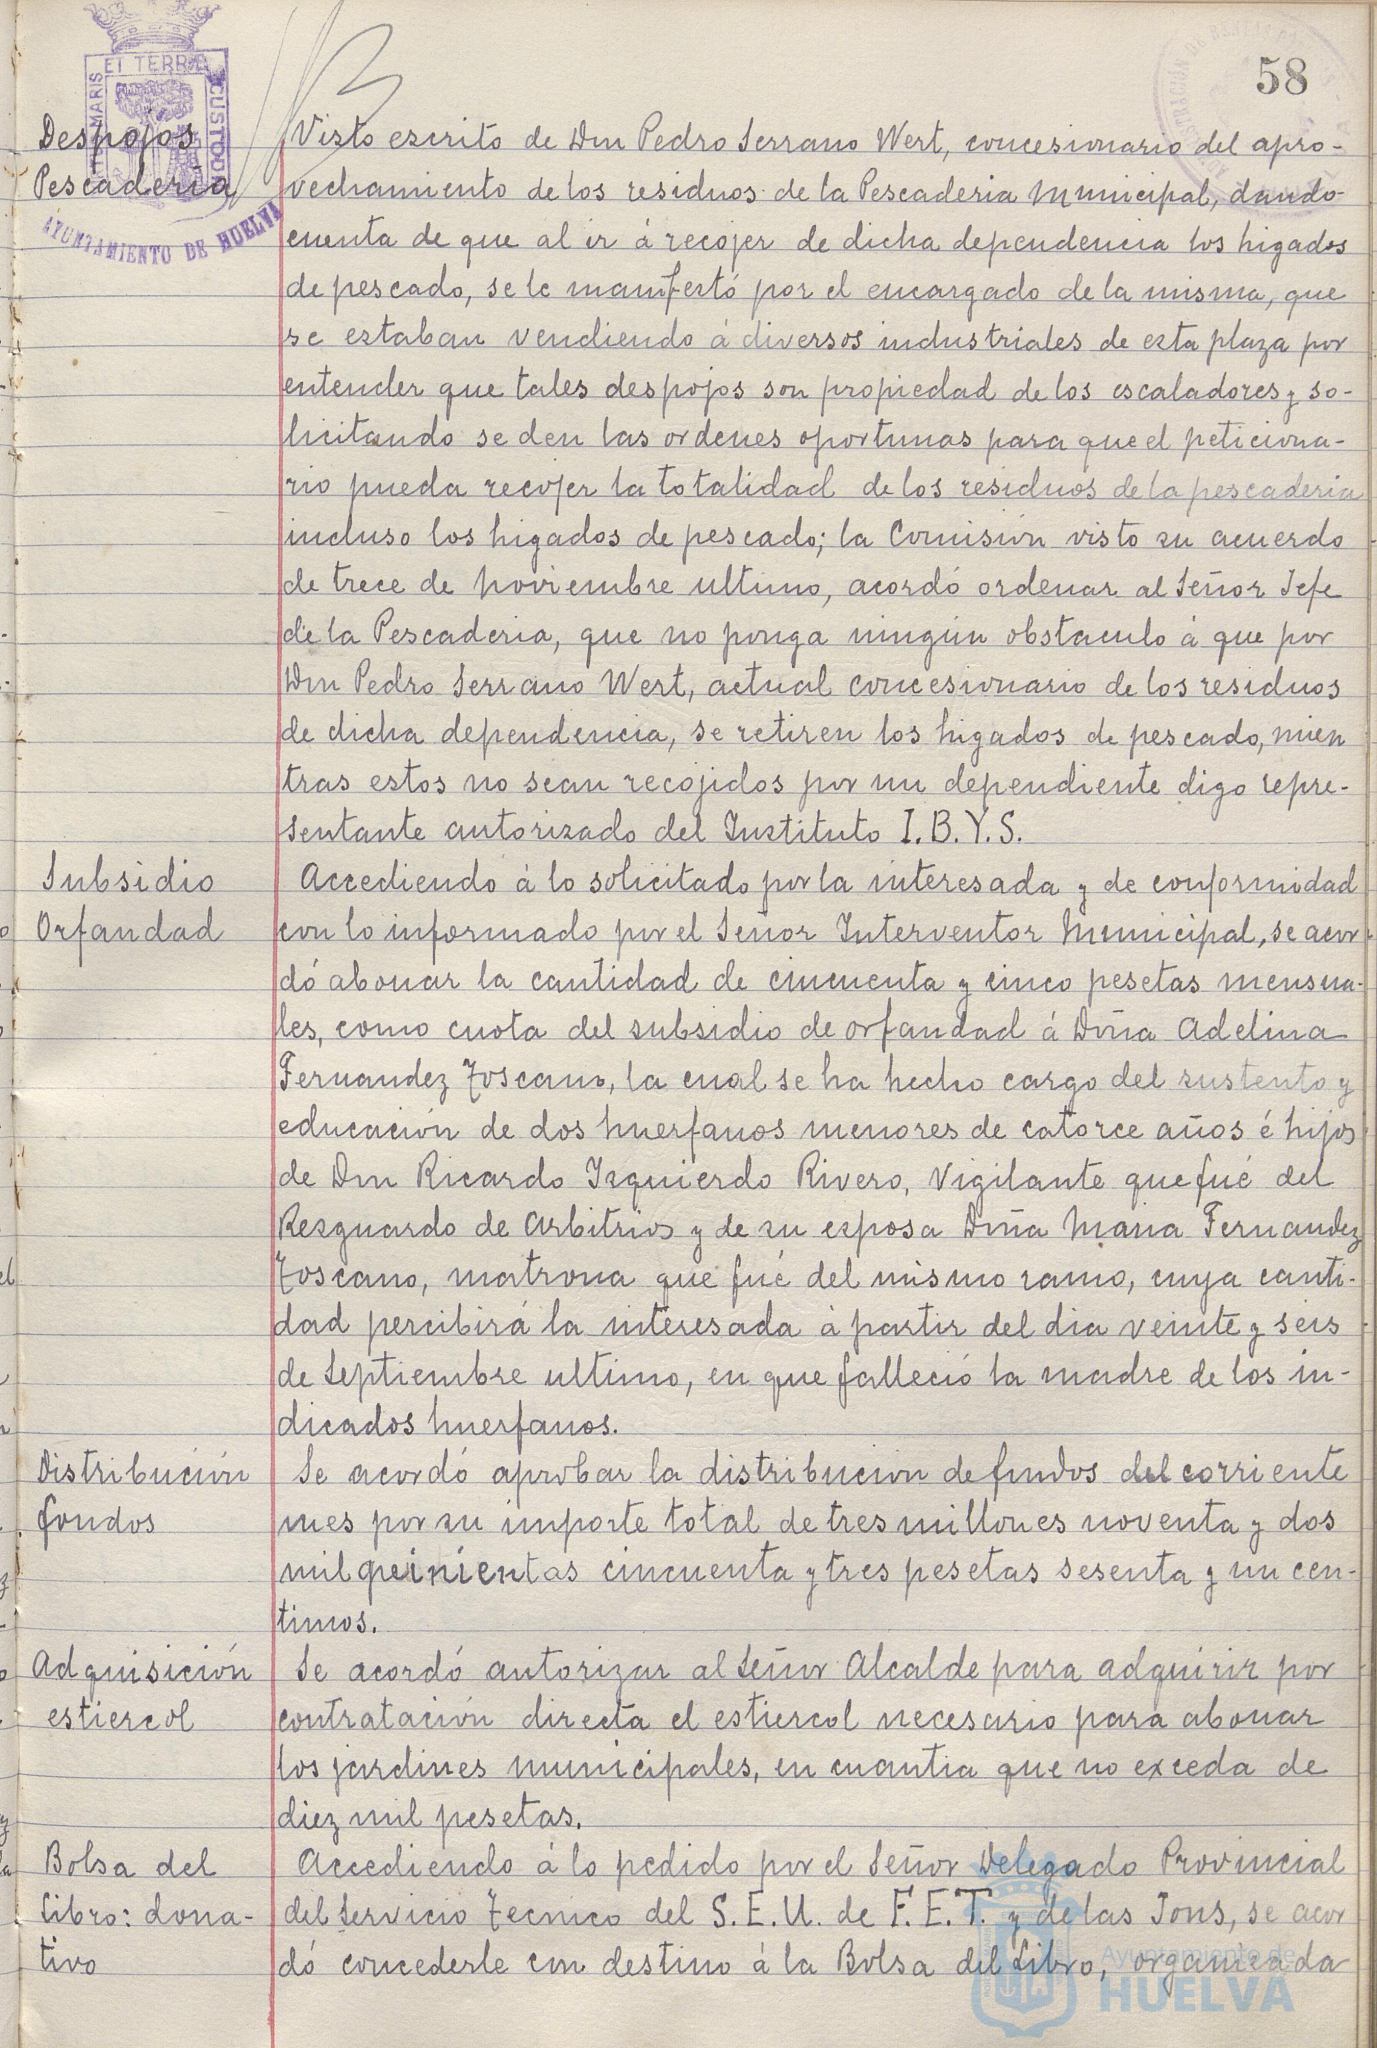 58
ET TERRE
MARIS
CUSTODI
AYUNTAMIENTO DE HUELVA
Despojos
Pescaderia
Visto escrito de Don Pedro Serrano Wert, concesionario del apro-
vechamiento de los residuos de la Pescaderia Municipal, dando
cuenta de que al ir á recojer de dicha dependencia los higados
de pescado, se le manifestó por el encargado de la misma, que
se estaban vendiendo á diversos industriales de esta plaza por
entender que tales despojos son propiedad de los escaladores y so-
licitando se den las ordenes oportunas para que el peticiona-
rio pueda recojer la totalidad de los residuos de la pescaderia
incluso los higados de pescado; la Comisión visto su acuerdo
de trece de Noviembre ultimo, acordó ordenar al Señor Jefe
de la Pescaderia, que no ponga ningún obstaculo á que por
Don Pedro Serrano Wert, actual concesionario de los residuos
de dicha dependencia, se retiren los higados de pescado, mien
tras estos no sean recojidos por un dependiente digo repre-
sentante autorizado del Instituto I.B.Y.S.
Subsidio
Orfandad
Accediendo á lo solicitado por la interesada y de conformidad
con lo informado por el Señor Interventor Municipal, se acor
dó abonar la cantidad de cincuenta y cinco pesetas mensua-
les, como cuota del subsidio de orfandad á Doña Adelina
Fernandez Toscano, la cual se ha hecho cargo del sustento y
educación de dos huerfanos menores de catorce años é hijos
de Don Ricardo Izquierdo Rivero, Vigilante que fué del
Resguardo de Arbitrios y de su esposa Doña Maria Fernandez
Toscano, matrona que fué del mismo ramo, cuya canti-
dad percibirá la interesada á partir del dia veinte y seis
de Septiembre ultimo, en que falleció la madre de los in-
dicados huerfanos.
Distribución
fondos
Se acordó aprobar la distribución de fondos del corriente
mes por su importe total de tres millones noventa y dos
mil quinientas cincuenta y tres pesetas sesenta y un cen-
timos.
Adquisición
estiercol
Se acordó autorizar al Señor Alcalde para adquirir por
contratación directa el estiercol necesario para abonar
los jardines municipales, en cuantia que no exceda de
diez mil pesetas.
Bolsa del
Libro: dona-
tivo
Accediendo á lo pedido por el Señor Delegado Provincial
del Servicio Tecnico del S.E.U. de F.E.T. y de las Jons, se acor
dó concederle con destino á la Bolsa del Libro, organizada
Ayuntamiento de
HUELVA